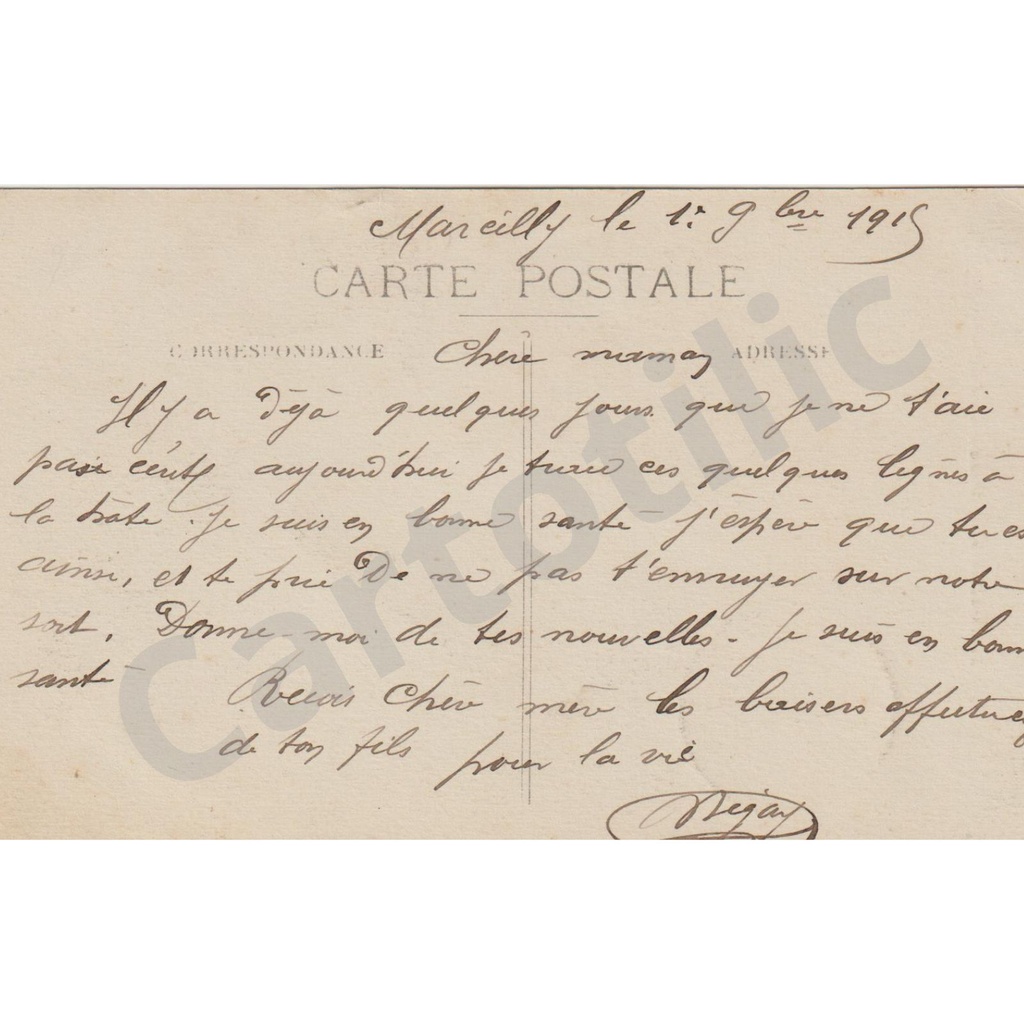 Marcilly le 1er 9bre 1915
CARTE POSTALE
CORRESPONDANCE
ADRESSE
Chère maman
Il y a déjà quelques jours que je ne t'aie
pas écrit aujourd'hui je trace ces quelques lignes à
la hâte. Je suis en bonne santé j'espère que tu es
ainsi, et te prie De ne pas t'ennuyer sur notre
sort, Donne-moi de tes nouvelles. Je suis en bonn
santé
Reçois Chère mère les baisers affectueu
de ton fils pour la vie
Cartotilic